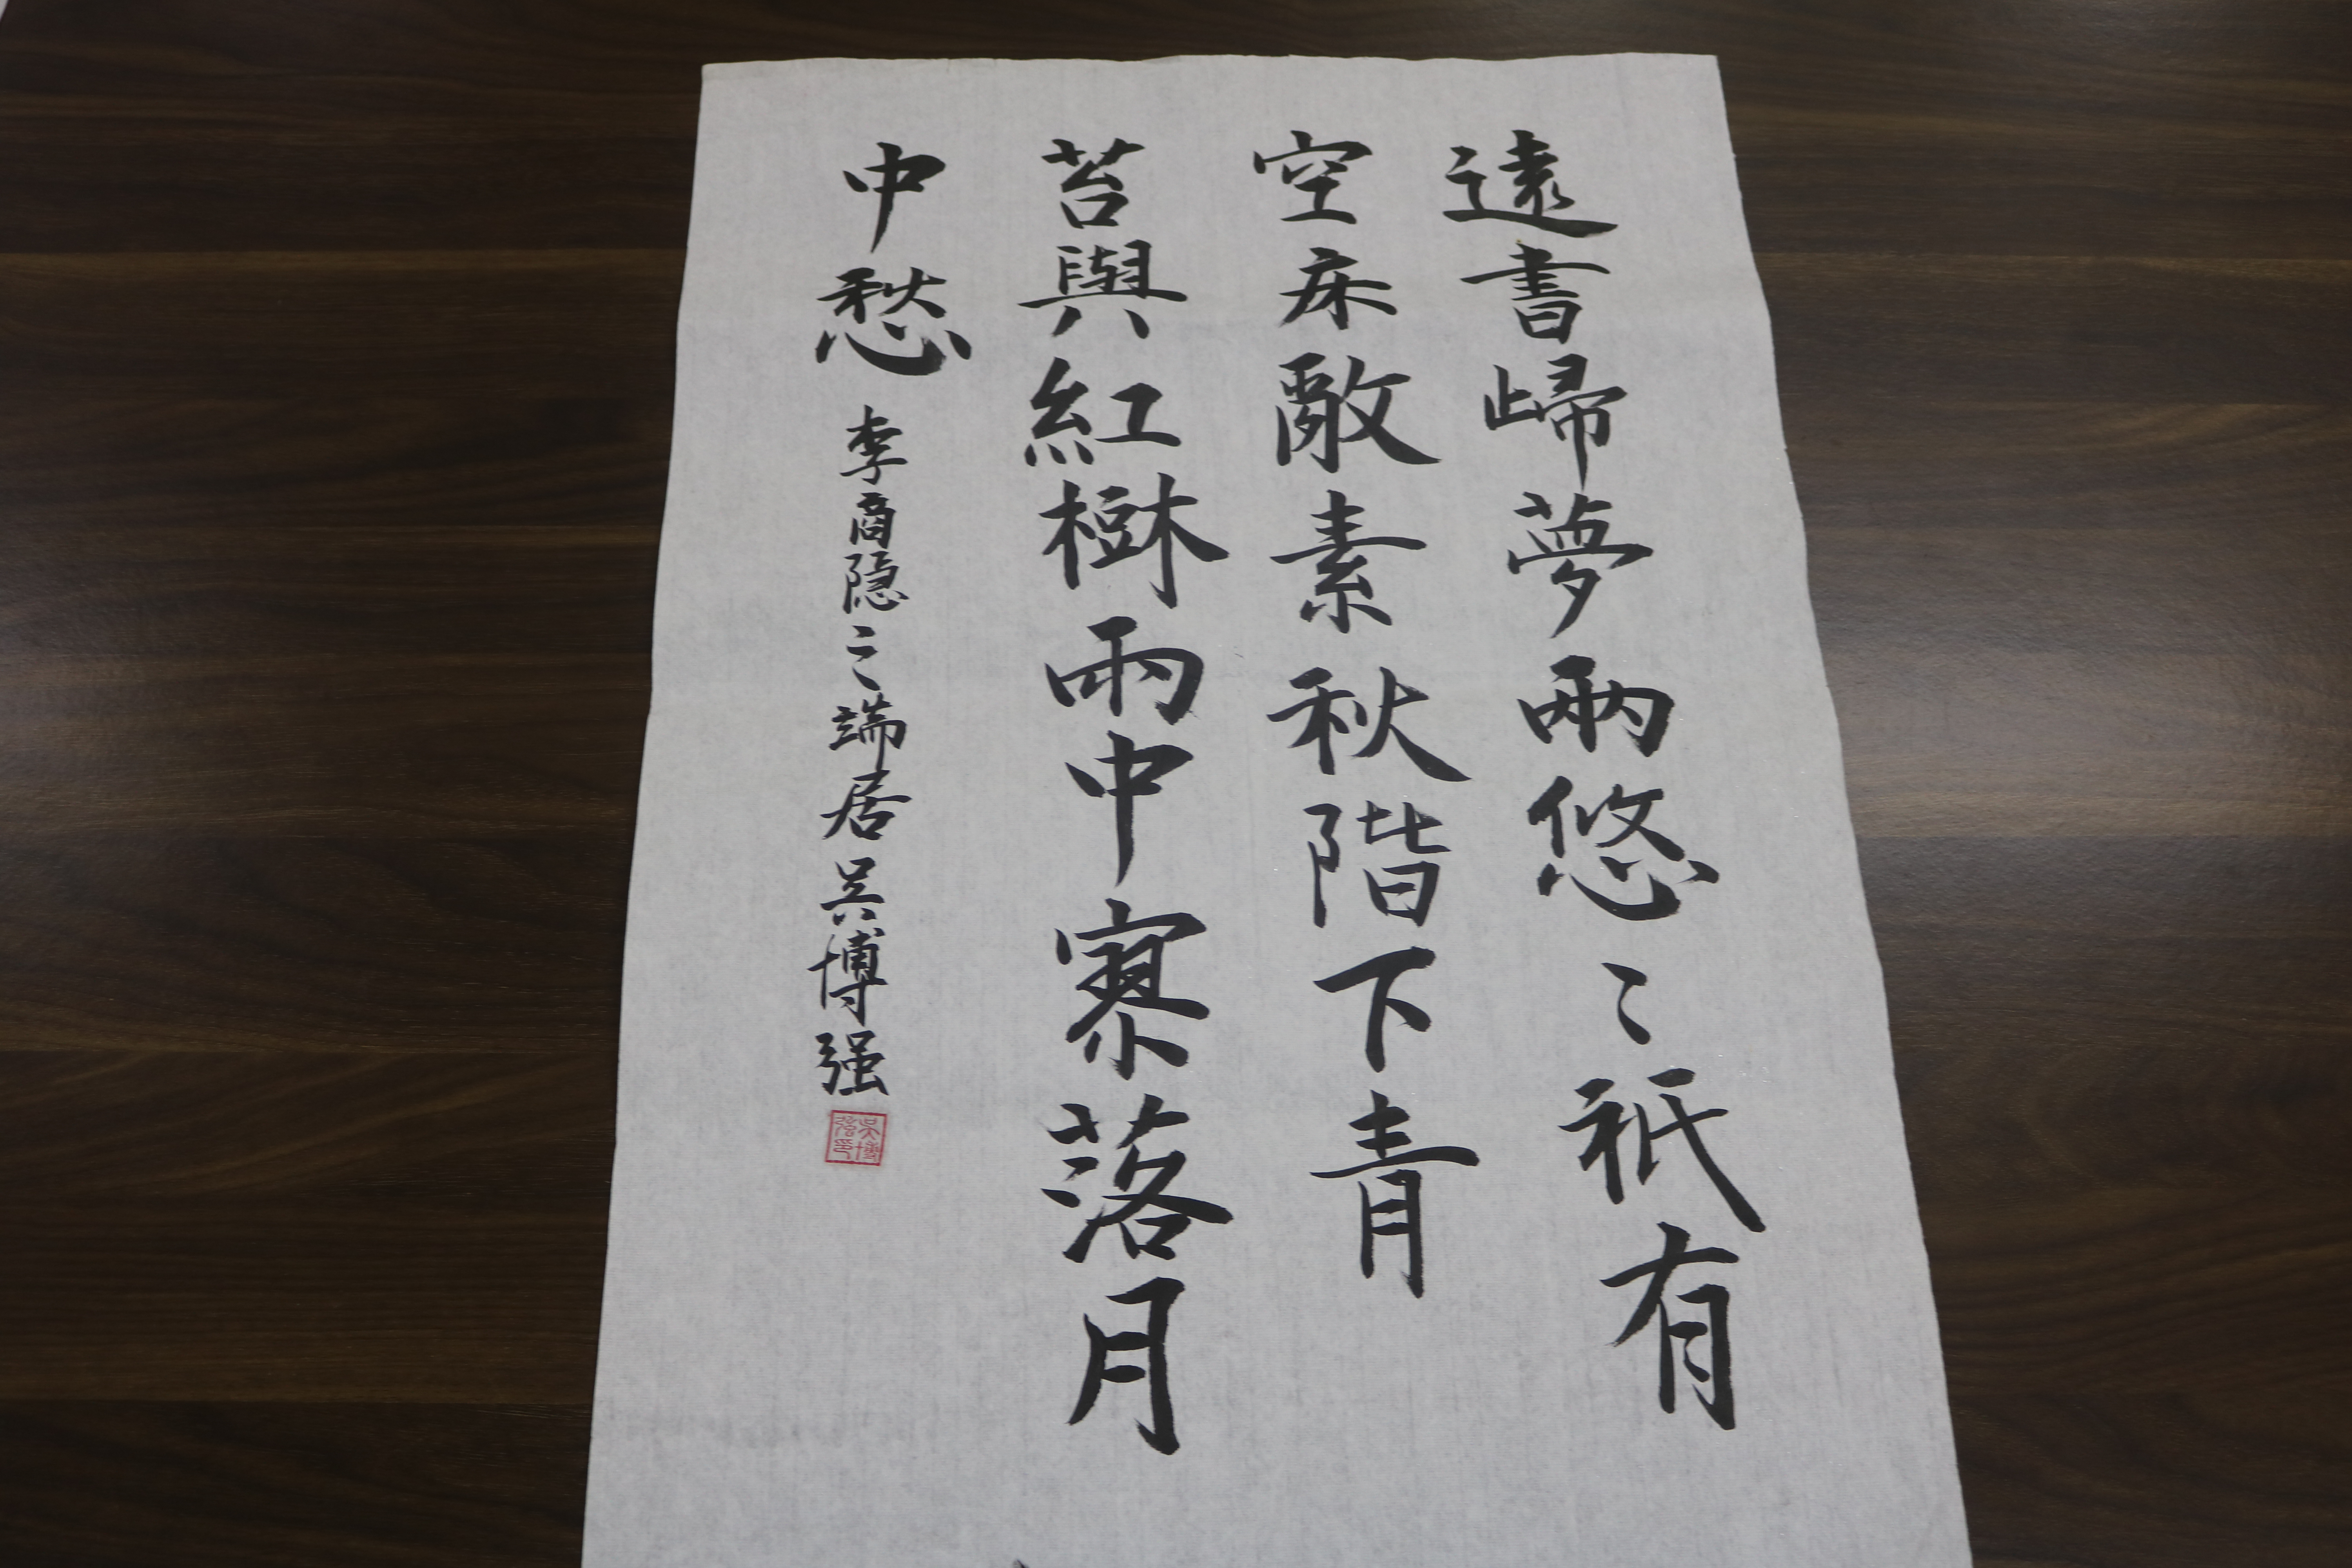 遠書歸夢兩悠〻祇有
空床敵素秋階下青
苔與紅樹雨中寥落月
中愁 李商隐之端居吴博强
吴博强印